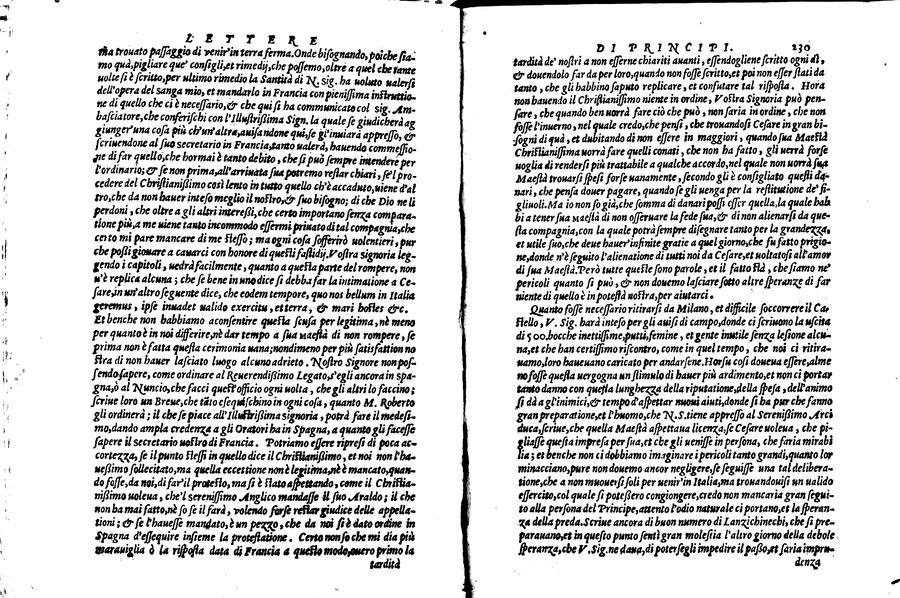 LETTERE
ma trouato passaggio di venir' in terra ferma. Onde bisognando, poiche sia-
mo quà, pigliare que' consigli, et rimedij, che possemo, oltre a quel che tante
uolte si è scritto, per ultimo rimedio la Santità di N. Sig. ha uoluto ualersi
dell'opera del sanga mio, et mandarlo in Francia con pienissima instruttio-
ne di quello che ci è necessario, & che qui si ha communicato col sig. Am-
basciatore, che conferischi con l'Illustrissima Sign. la quale se giudicherà ag
giunger' una cosa più ch'un'altra, auisandone qui, se gl'inuiarà appresso, &
scriuendone al suo secretario in Francia, tanto ualerà, hauendo commessio-
ne di far quello, che hormai è tanto debito, che si può sempre intendere per
l'ordinario; & se non prima, all'arriuata sua potremo restar chiari, se'l pro-
cedere del Christianissimo così lento in tutto quello ch'è accaduto, uiene d'al
tro, che da non hauer inteso meglio il nostro, & suo bisogno; di che Dio ne li
perdoni, che oltre a gli altri interessi, che certo importano senza compara-
tione più, a me uiene tanto incommodo essermi priuato di tal compagnia, che
certo mi pare mancare di me stesso; ma ogni cosa sofferirò uolentieri, pur
che possi giouare a cauarci con honore di questi fastidij. Vostra Signoria leg-
gendo i capitoli, uedrà facilmente, quanto a questa parte del rompere, non
u'è replica alcuna; che se bene in uno dice si debba far la intimatione a Ce-
sare, in un'altro seguente dice, che eodem tempore, quo nos bellum in Italia
geremus, ipse inuadet ualido exercitu, et terra, & mari hostes &c.
Et benche non habbiamo a consentire questa scusa per legitima, nè meno
per quanto è in noi differire, nè dar tempo a sua maestà di non rompere, se
prima non è fatta questa cerimonia uana; nondimeno per più satisfattion no
stra di non hauer lasciato luogo alcuno adrieto. Nostro Signore non pos-
sendo sapere, come ordinare al Reuerendissimo Legato, s'egli ancora in Spa
gna, ò al Nuncio, che facci quest'officio ogni uolta, che gli altri lo faccino;
scriue loro un Breue, che tāto essequischino in ogni cosa, quanto M. Roberto
gli ordinerà; il che se piace all'Illustrissima signoria, potrà fare il medesi-
mo, dando ampla credenza a gli Oratori ha in Spagna, a quanto gli facesse
sapere il secretario uostro di Francia. Potriamo essere ripresi di poca ac-
cortezza, se il punto stessi in quello dice il Christianissimo, et noi non l'ha-
uessimo sollecitato, ma quella eccettione non è legitima, nè è mancato, quan-
do fosse, da noi, di far'il protesto, ma si è stato aspettando, come il Christia-
nissimo uoleua, che'l serenissimo Anglico mandasse il suo Araldo; il che
non ha mai fatto, nè so se il farà, volendo forse restar giudice delle appella-
tioni; & se l'hauesse mandato, è un pezzo, che da noi si è dato ordine in
Spagna d'essequire insieme la protestatione. Certo non so che mi dia più
marauiglia ò la risposta data di Francia a questo modo, uero prima la
tardità
DI PRINCIPI. 230
tardità de' nostri a non esserne chiariti auanti, essendogliene scritto ogni dì,
& douendolo far da per loro, quando non fosse scritto, et poi non esser stati da
tanto, che gli habbino saputo replicare, et confutare tal risposta. Hora
non hauendo il Christianissimo niente in ordine, Vostra Signoria può pen-
sare, che quando ben uorrà fare ciò che può, non saria in ordine, che non
fosse l'inuerno, nel quale credo, che pensi, che trouandosi Cesare in gran bi-
sogni di quà, et dubitando di non essere in maggiori, quando sua Maestà
Christianissima uorrà fare quelli conati, che non ha fatto, gli uerrà forse
uoglia di rendersi più trattabile a qualche accordo, nel quale non uorrà sua
Maestà trouarsi spesi forse uanamente, secondo gli è consigliato questi da-
nari, che pensa douer pagare, quando se gli uenga per la restitutione de' fi-
gliuoli. Ma io non so già, che somma di danari possi esser quella, la quale hab
bi a tener sua Maestà di non osseruare la fede sua, & di non alienarsi da que-
sta compagnia, con la quale potrà sempre disegnare tanto per la grandezza,
et utile suo, che deue hauer' infinite gratie a quel giorno, che fu fatto prigio-
ne, donde n'è seguito l'alienatione di tutti noi da Cesare, et uoltatosi all'amor
di sua Maestà. Però tutte queste sono parole, et il fatto stà, che siamo ne'
pericoli quanto si può, & non douemo lasciare sotto altre speranze di far
niente di quello è in potestà nostra, per aiutarci.
Quanto fosse necessario ritirarsi da Milano, et difficile soccorrere il Ca-
stello, V. Sig. harà inteso per gli auisi di campo, donde ci scriuono la uscita
di 500. bocche inettissime, putti, femine, et gente inutile senza lesione alcu-
na, et che han certissimo riscontro, come in quel tempo, che noi ci ritira-
uamo, loro haueuano caricato per andarsene. Horsu così doueua essere, alme
no fosse questa uergogna un stimulo di hauer più ardimento, et non ci portar
tanto danno con questa lunghezza della riputatione, della spesa, dell'animo
si dà a gl'inimici, & tempo d'aspettar nuoui aiuti, donde si ha pur che fanno
gran preparatione, et l'huomo, che N. S. tiene appresso al Serenissimo Arci
duca, scriue, che quella Maestà aspettaua licenza, se Cesare uoleua, che pi-
gliasse questa impresa per sua, et che gli uenisse in persona, che faria mirabi
lia; et benche non ci dobbiamo imaginare i pericoli tanto grandi, quanto lor
minacciano, pure non douemo ancor negligere, se seguisse una tal delibera-
tione, che a non muouersi soli per uenir' in Italia, ma trouandouisi un ualido
essercito, col quale si potessero congiongere, credo non mancaria gran segui-
to alla persona del Principe, attento l'odio naturale ci portano, et la speran-
za della preda. Scriue ancora di buon numero di Lanzichinechi, che si pre-
parauano, et in questo punto sentì gran molestia l'altro giorno della debole
speranza, che V. Sig. ne daua, di potersegli impedire il passo, et saria impru-
denza